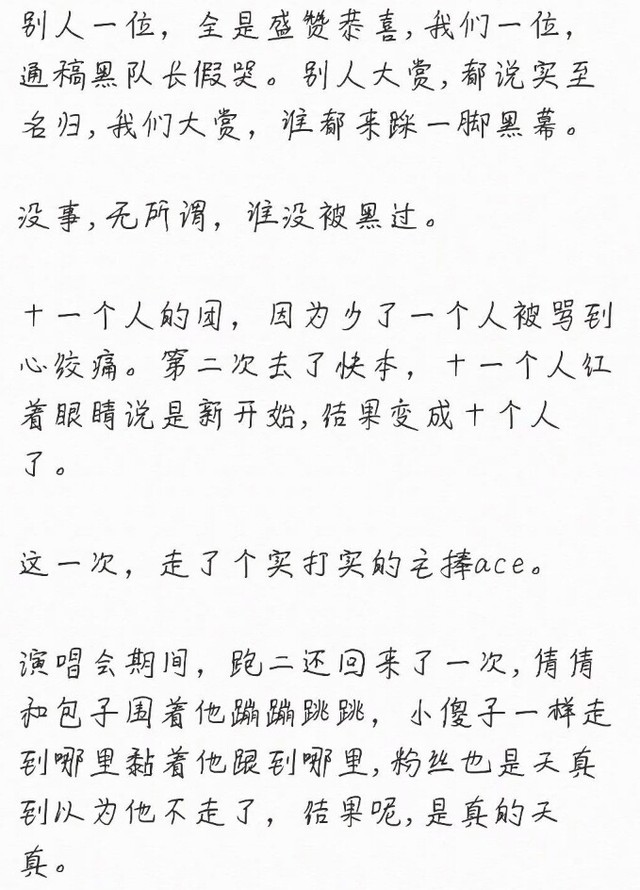 别人一位，全是盛赞恭喜，我们一位，
通稿黑队长假哭。别人大赏，都说实至
名归，我们大赏，谁都来踩一脚黑幕。
没事，无所谓，谁没被黑过。
十一个人的团，因为少了一个人被骂到
心绞痛。第二次去了快本，十一个人红
着眼睛说是新开始，结果变成十个人
了。
这一次，走了个实打实的主捧ace。
演唱会期间，跑二还回来了一次，倩倩
和包子围着他蹦蹦跳跳，小傻子一样走
到哪里黏着他跟到哪里，粉丝也是天真
到以为他不走了，结果呢，是真的天
真。